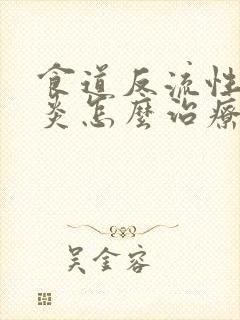 食道反流性
炎怎麼治療
吳金容